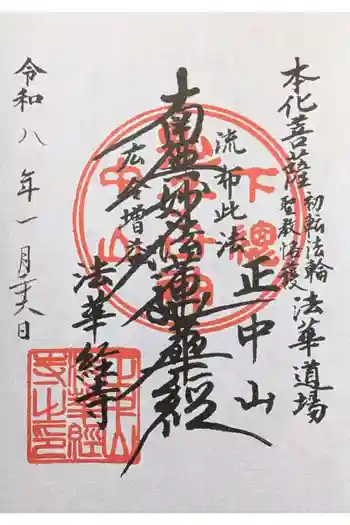 本化菩薩初転法輪法華道場
聖教格護
正中山
流布此法
南無妙法蓮華経
広令増益
法華経寺
令和八年一月十六日
下總
中山